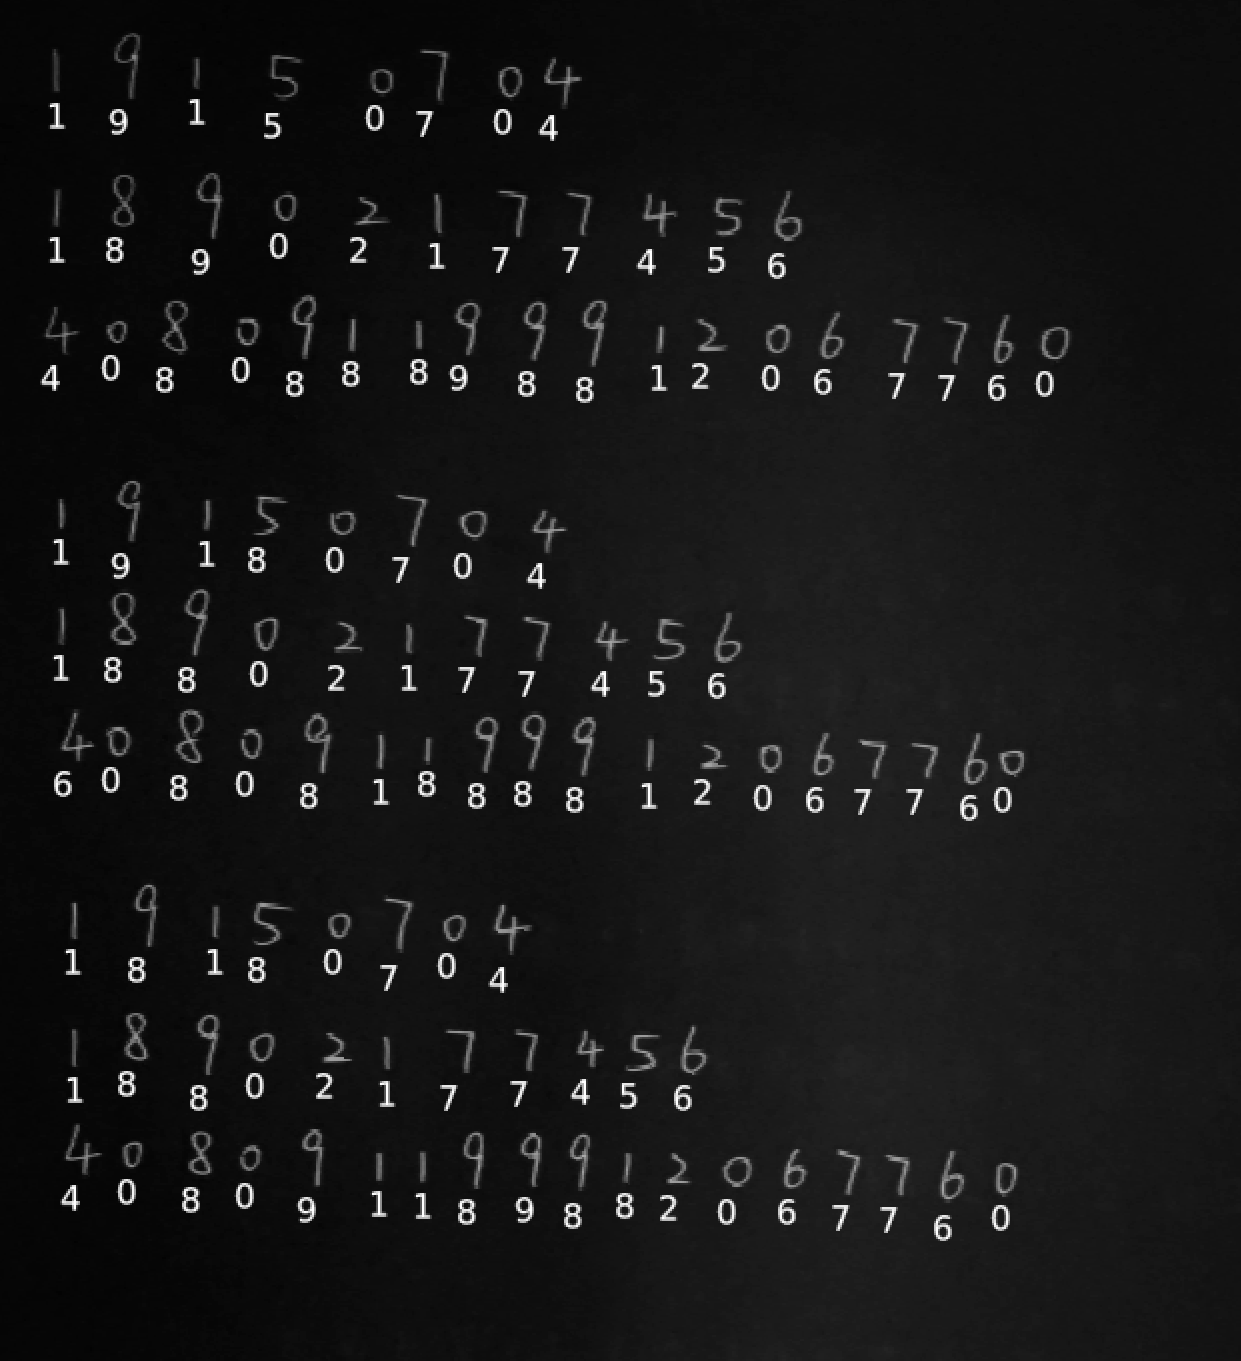 1 9 1 5 0 7 0 4
1 9 1 5 0 7 0 4
1 8 9 0 2 1 7 7 4 5 6
1 8 9 0 2 1 7 7 4 5 6
4 0 8 0 9 1 1 9 9 9 1 2 0 6 7 7 6 0
4 0 8 0 8 8 8 9 8 8 1 2 0 6 7 7 6 0
1 9 1 5 0 7 0 4
1 9 1 8 0 7 0 4
1 8 9 0 2 1 7 7 4 5 6
1 8 8 0 2 1 7 7 4 5 6
4 0 8 0 9 1 1 9 9 9 1 2 0 6 7 7 6 0
6 0 8 0 8 1 8 8 8 8 1 2 0 6 7 7 6 0
1 9 1 5 0 7 0 4
1 8 1 8 0 7 0 4
1 8 9 0 2 1 7 7 4 5 6
1 8 8 0 2 1 7 7 4 5 6
4 0 8 0 9 1 1 9 9 9 1 2 0 6 7 7 6 0
4 0 8 0 9 1 1 8 9 8 8 2 0 6 7 7 6 0